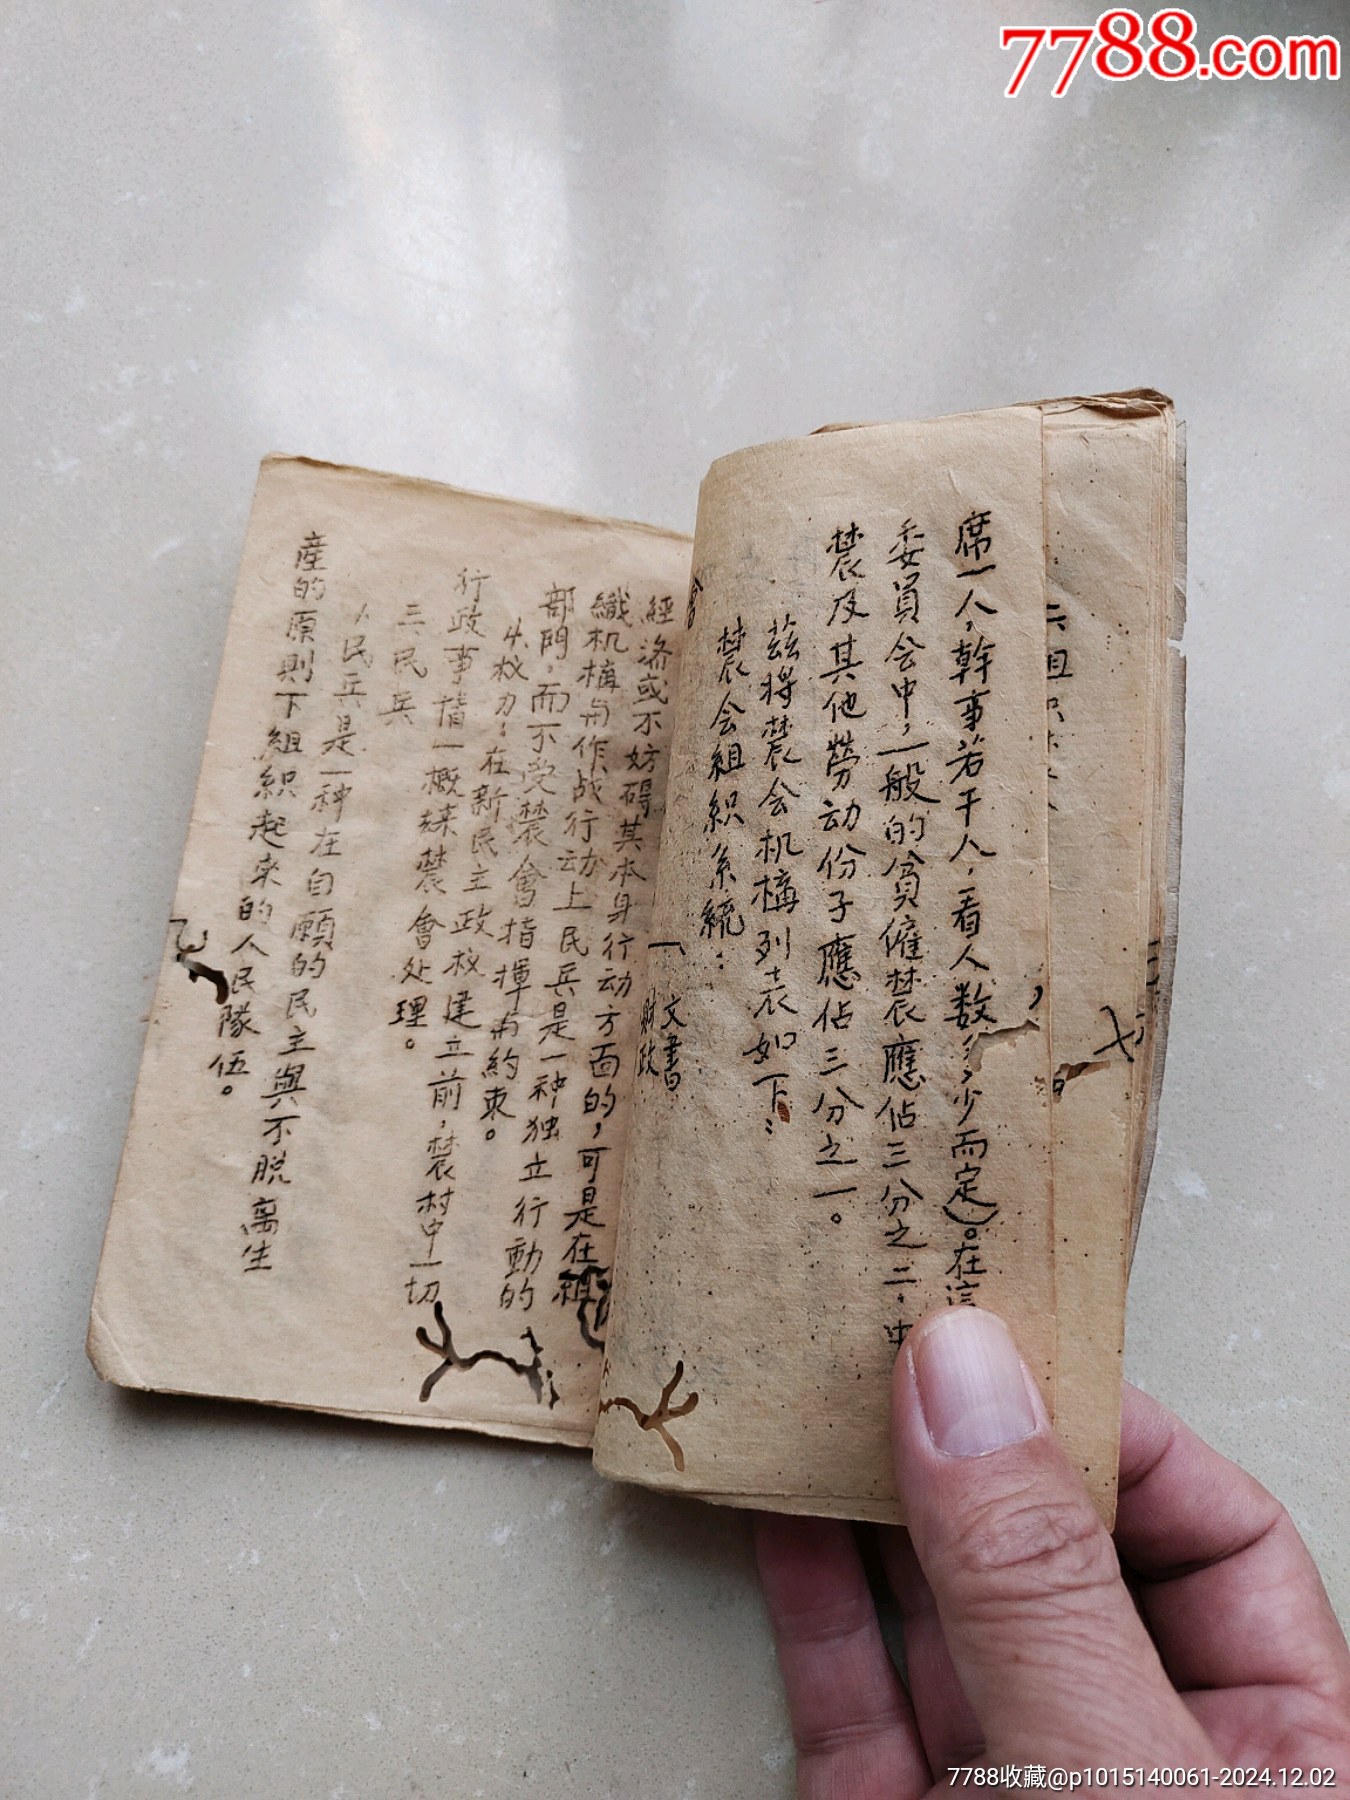 7788.com
席一人,幹事若干人,看人数多少而定)。在這
委員会中,一般的貧僱農應佔三分之二,中
農及其他勞动份子應佔三分之一。
茲将農会机構列表如下:
農会組織系統:
會
文書
財政
經济或不妨碍其本身行动方面的,可是在組
織机構与作战行动上民兵是一种独立行動的
部門,而不受農會指揮与約束。
4.权力:在新民主政权建立前,農村中一切
行政事情一概隸農會处理。
三、民兵
1、民兵是一种在自願的民主與不脫离生
產的原則下組織起来的人民隊伍。
7788收藏@p1015140061-2024.12.02